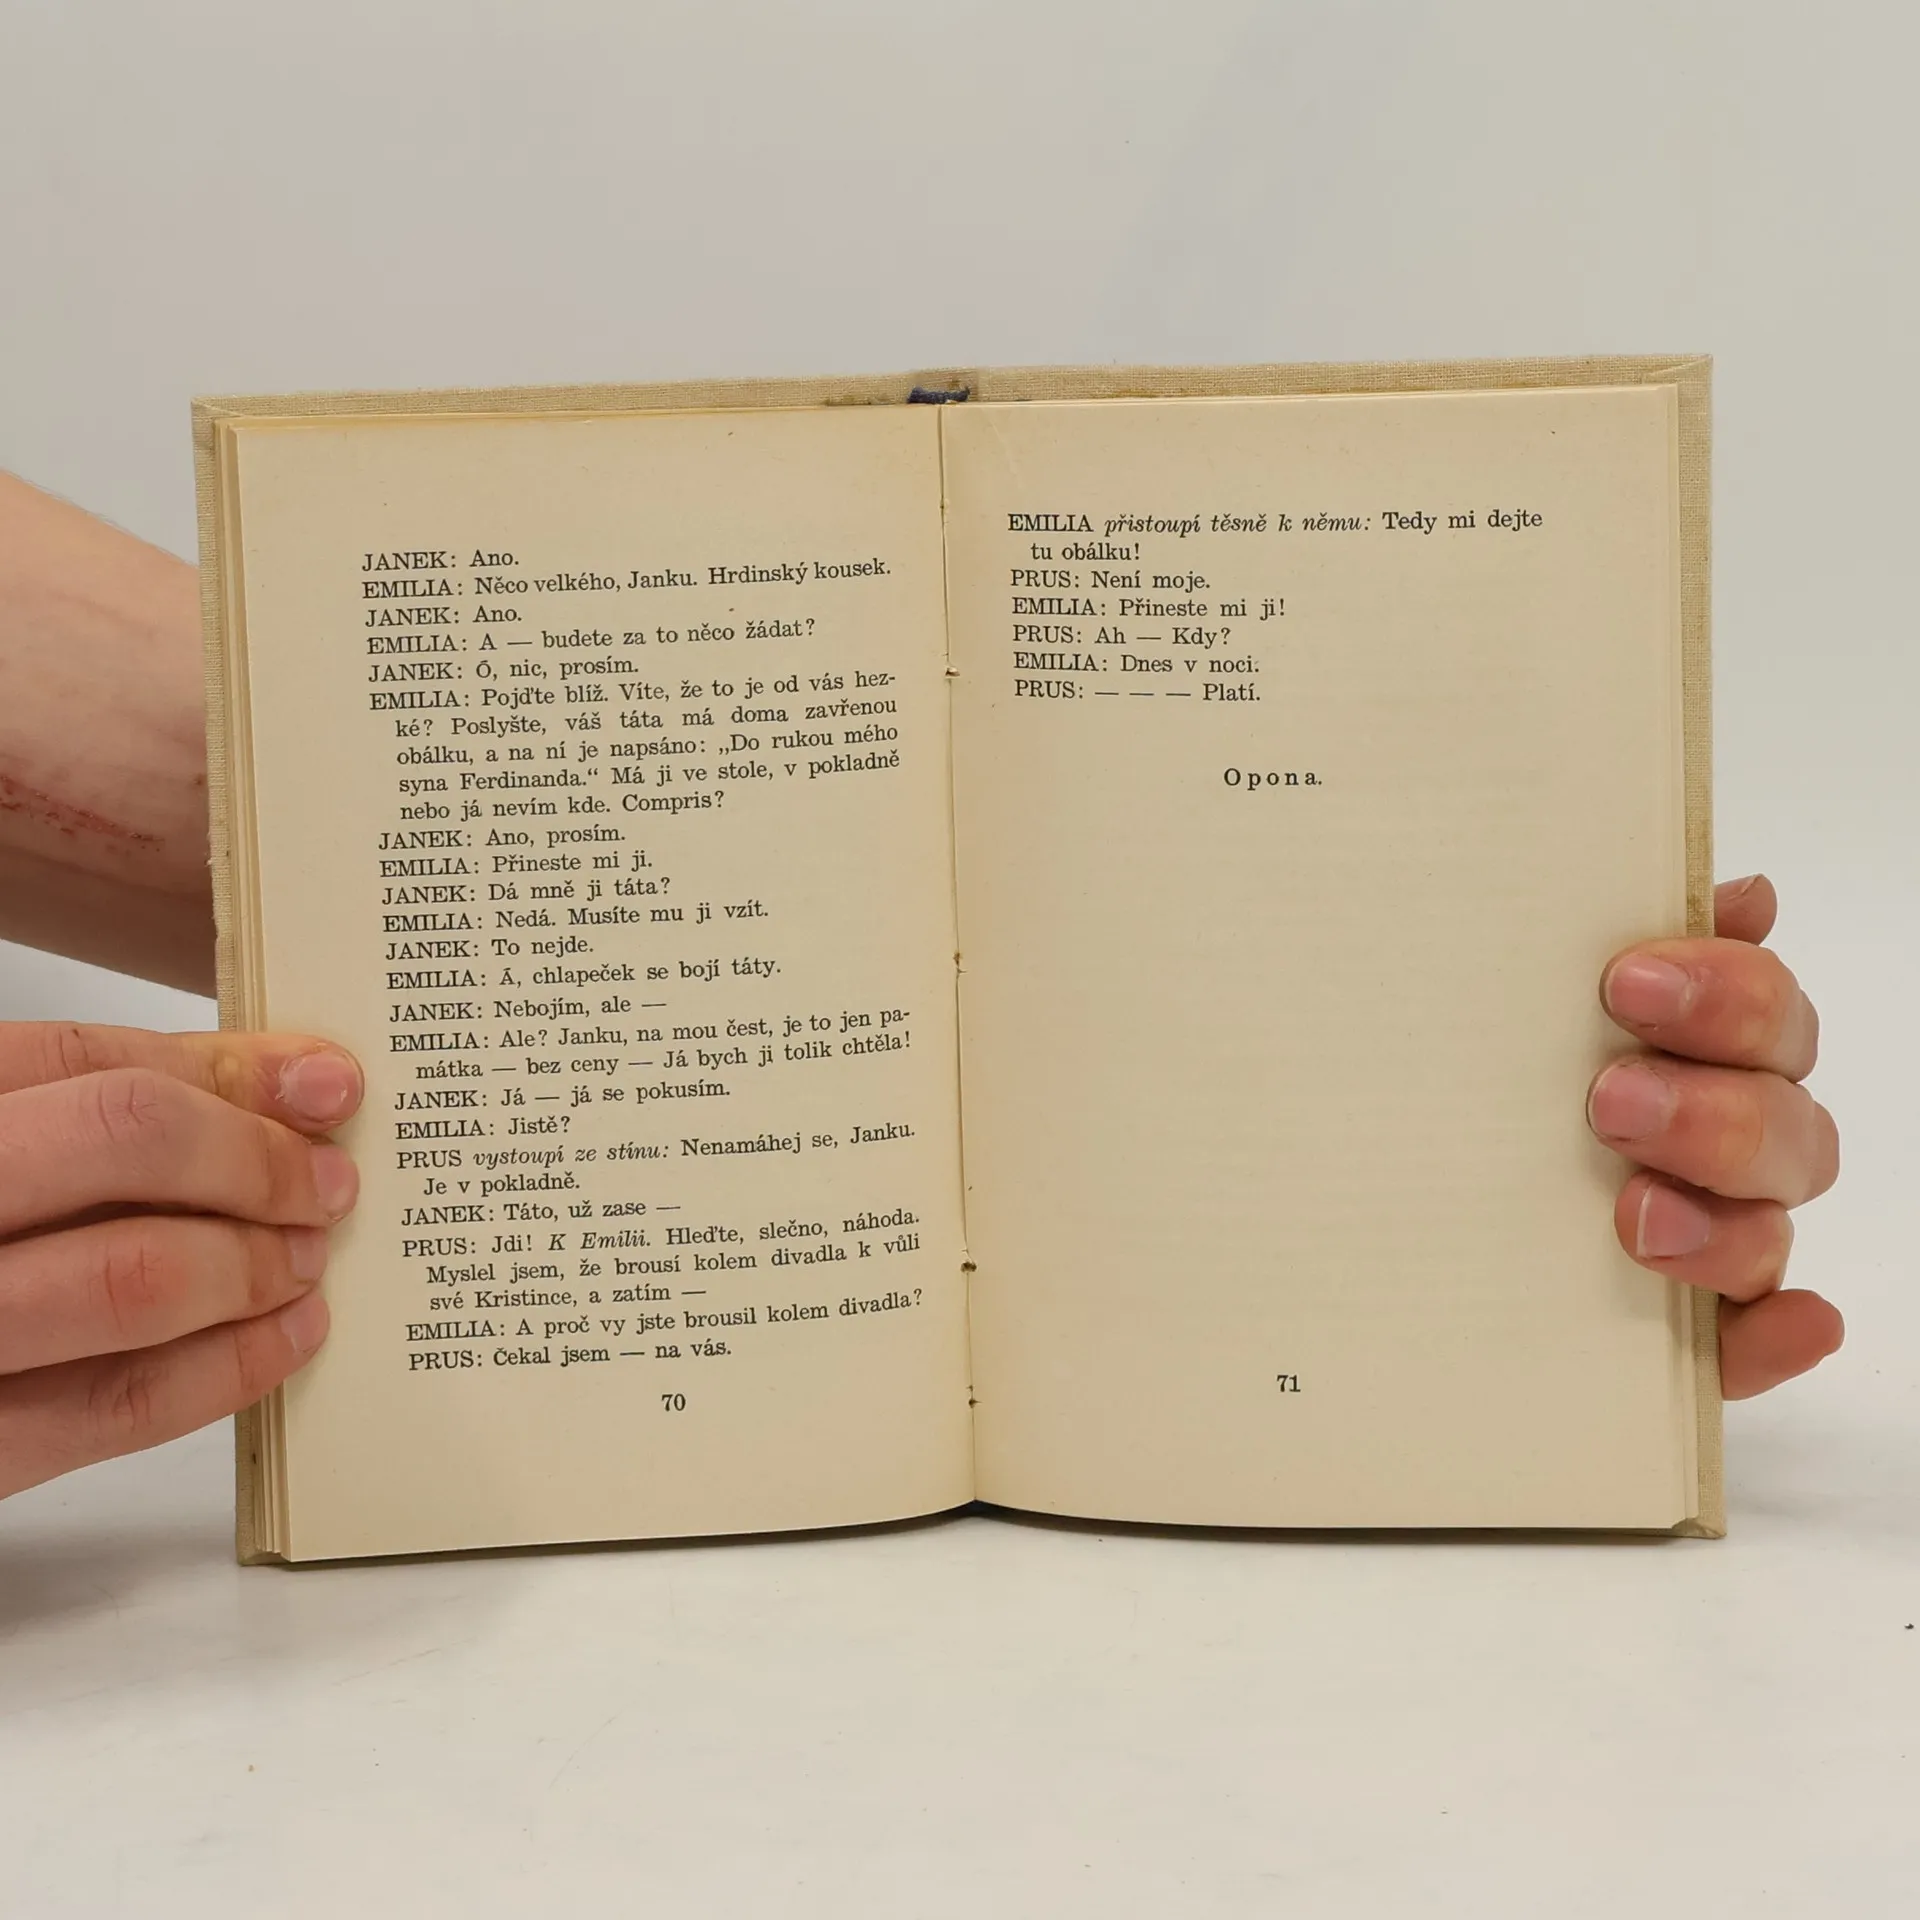 JANEK: Ano.
EMILIA: Něco velkého, Janku. Hrdinský kousek.
JANEK: Ano.
EMILIA: A — budete za to něco žádat?
JANEK: Ó, nic, prosím.
EMILIA: Pojďte blíž. Víte, že to je od vás hez-
ké? Poslyšte, váš táta má doma zavřenou
obálku, a na ní je napsáno: „Do rukou mého
syna Ferdinanda.“ Má ji ve stole, v pokladně
nebo já nevím kde. Compris?
JANEK: Ano, prosím.
EMILIA: Přineste mi ji.
JANEK: Dá mně ji táta?
EMILIA: Nedá. Musíte mu ji vzít.
JANEK: To nejde.
EMILIA: Á, chlapeček se bojí táty.
JANEK: Nebojím, ale —
EMILIA: Ale? Janku, na mou čest, je to jen pa-
mátka — bez ceny — Já bych ji tolik chtěla!
JANEK: Já — já se pokusím.
EMILIA: Jistě?
PRUS vystoupí ze stínu: Nenamáhej se, Janku.
Je v pokladně.
JANEK: Táto, už zase —
PRUS: Jdi! K Emilii. Hleďte, slečno, náhoda.
Myslel jsem, že brousí kolem divadla k vůli
své Kristince, a zatím —
EMILIA: A proč vy jste brousil kolem divadla?
PRUS: Čekal jsem — na vás.
70
EMILIA přistoupí těsně k němu: Tedy mi dejte
tu obálku!
PRUS: Není moje.
EMILIA: Přineste mi ji!
PRUS: Ah — Kdy?
EMILIA: Dnes v noci.
PRUS: — — — Platí.
Opona.
71